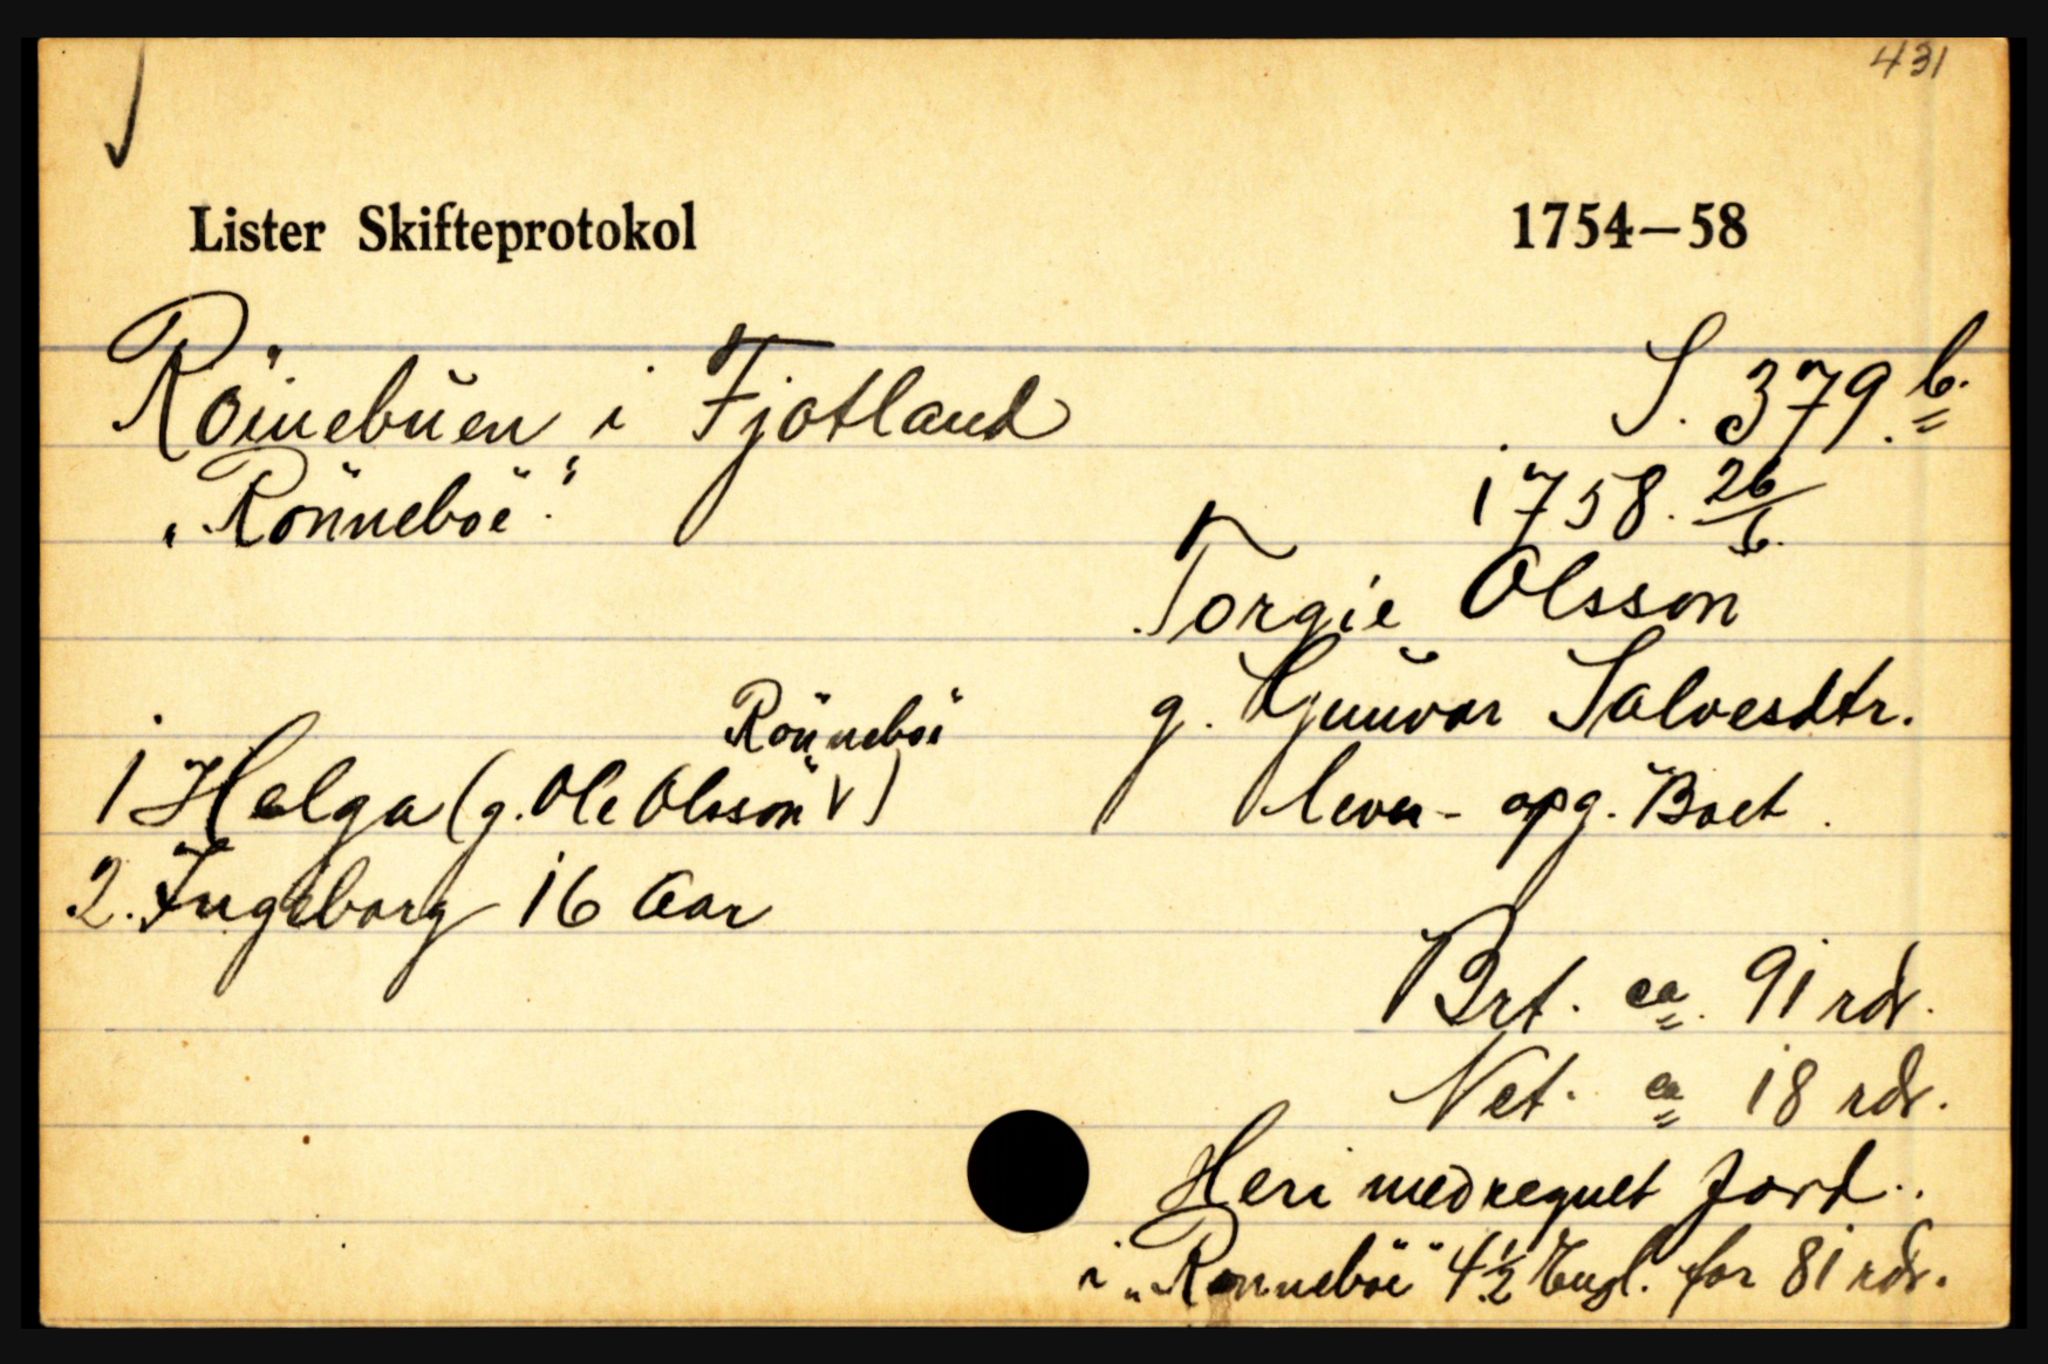 431
Lister Skifteprotokol 1754—58
Röinebuen i Fjotland S. 379.b.
"Rönneböe". 1758. 26/6.
Torgie Olsson
g. Gunvor Salvesdtr.
Rönneböi
1 Helga (g. Ole Olsson V) lever - opg. Boet.
2. Ingeborg 16 Aar
Brt. ca. 91 rdr.
Net. ca 18 rdr.
Heri medregnet Jord.
i "Rönneböe" 4½ Engl. for 81 rdr.